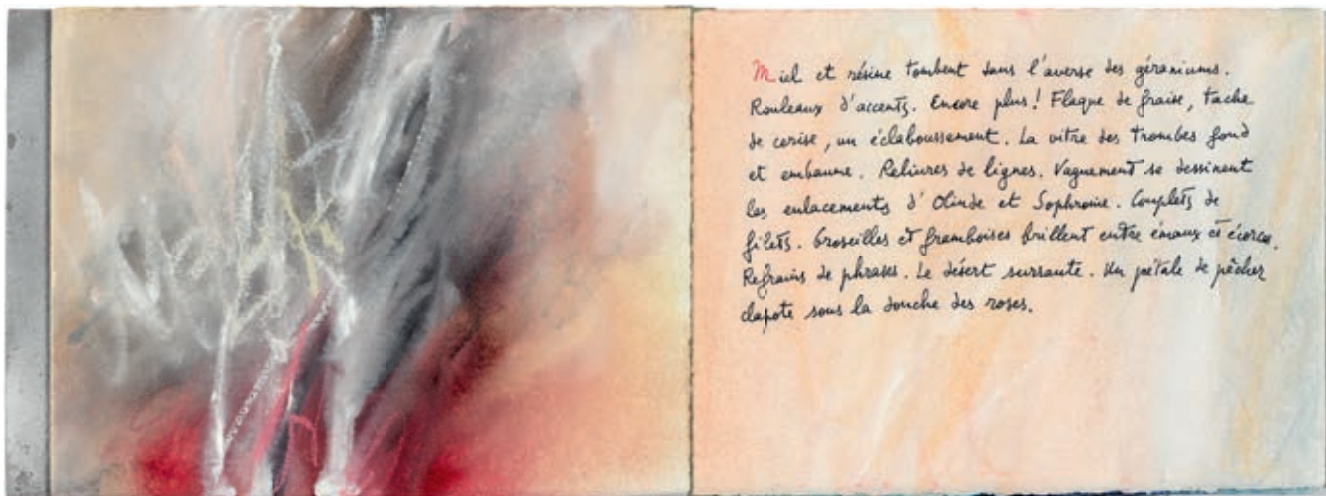 Miel et résine tombent dans l'averse des géraniums.
Rouleaux d'accents. Encore plus! Flaque de fraise, tache
de cerise, un éclaboussement. La vitre des trombes fond
et embaume. Reliures de lignes. Vaguement se dessinent
les enlacements d'Olinde et Sophronie. Couplets de
filets. Groseilles et framboises brillent entre émaux et écorce.
Refrains de phrases. Le désert sursaute. Un pétale de pêcher
clapote sous la douche des roses.